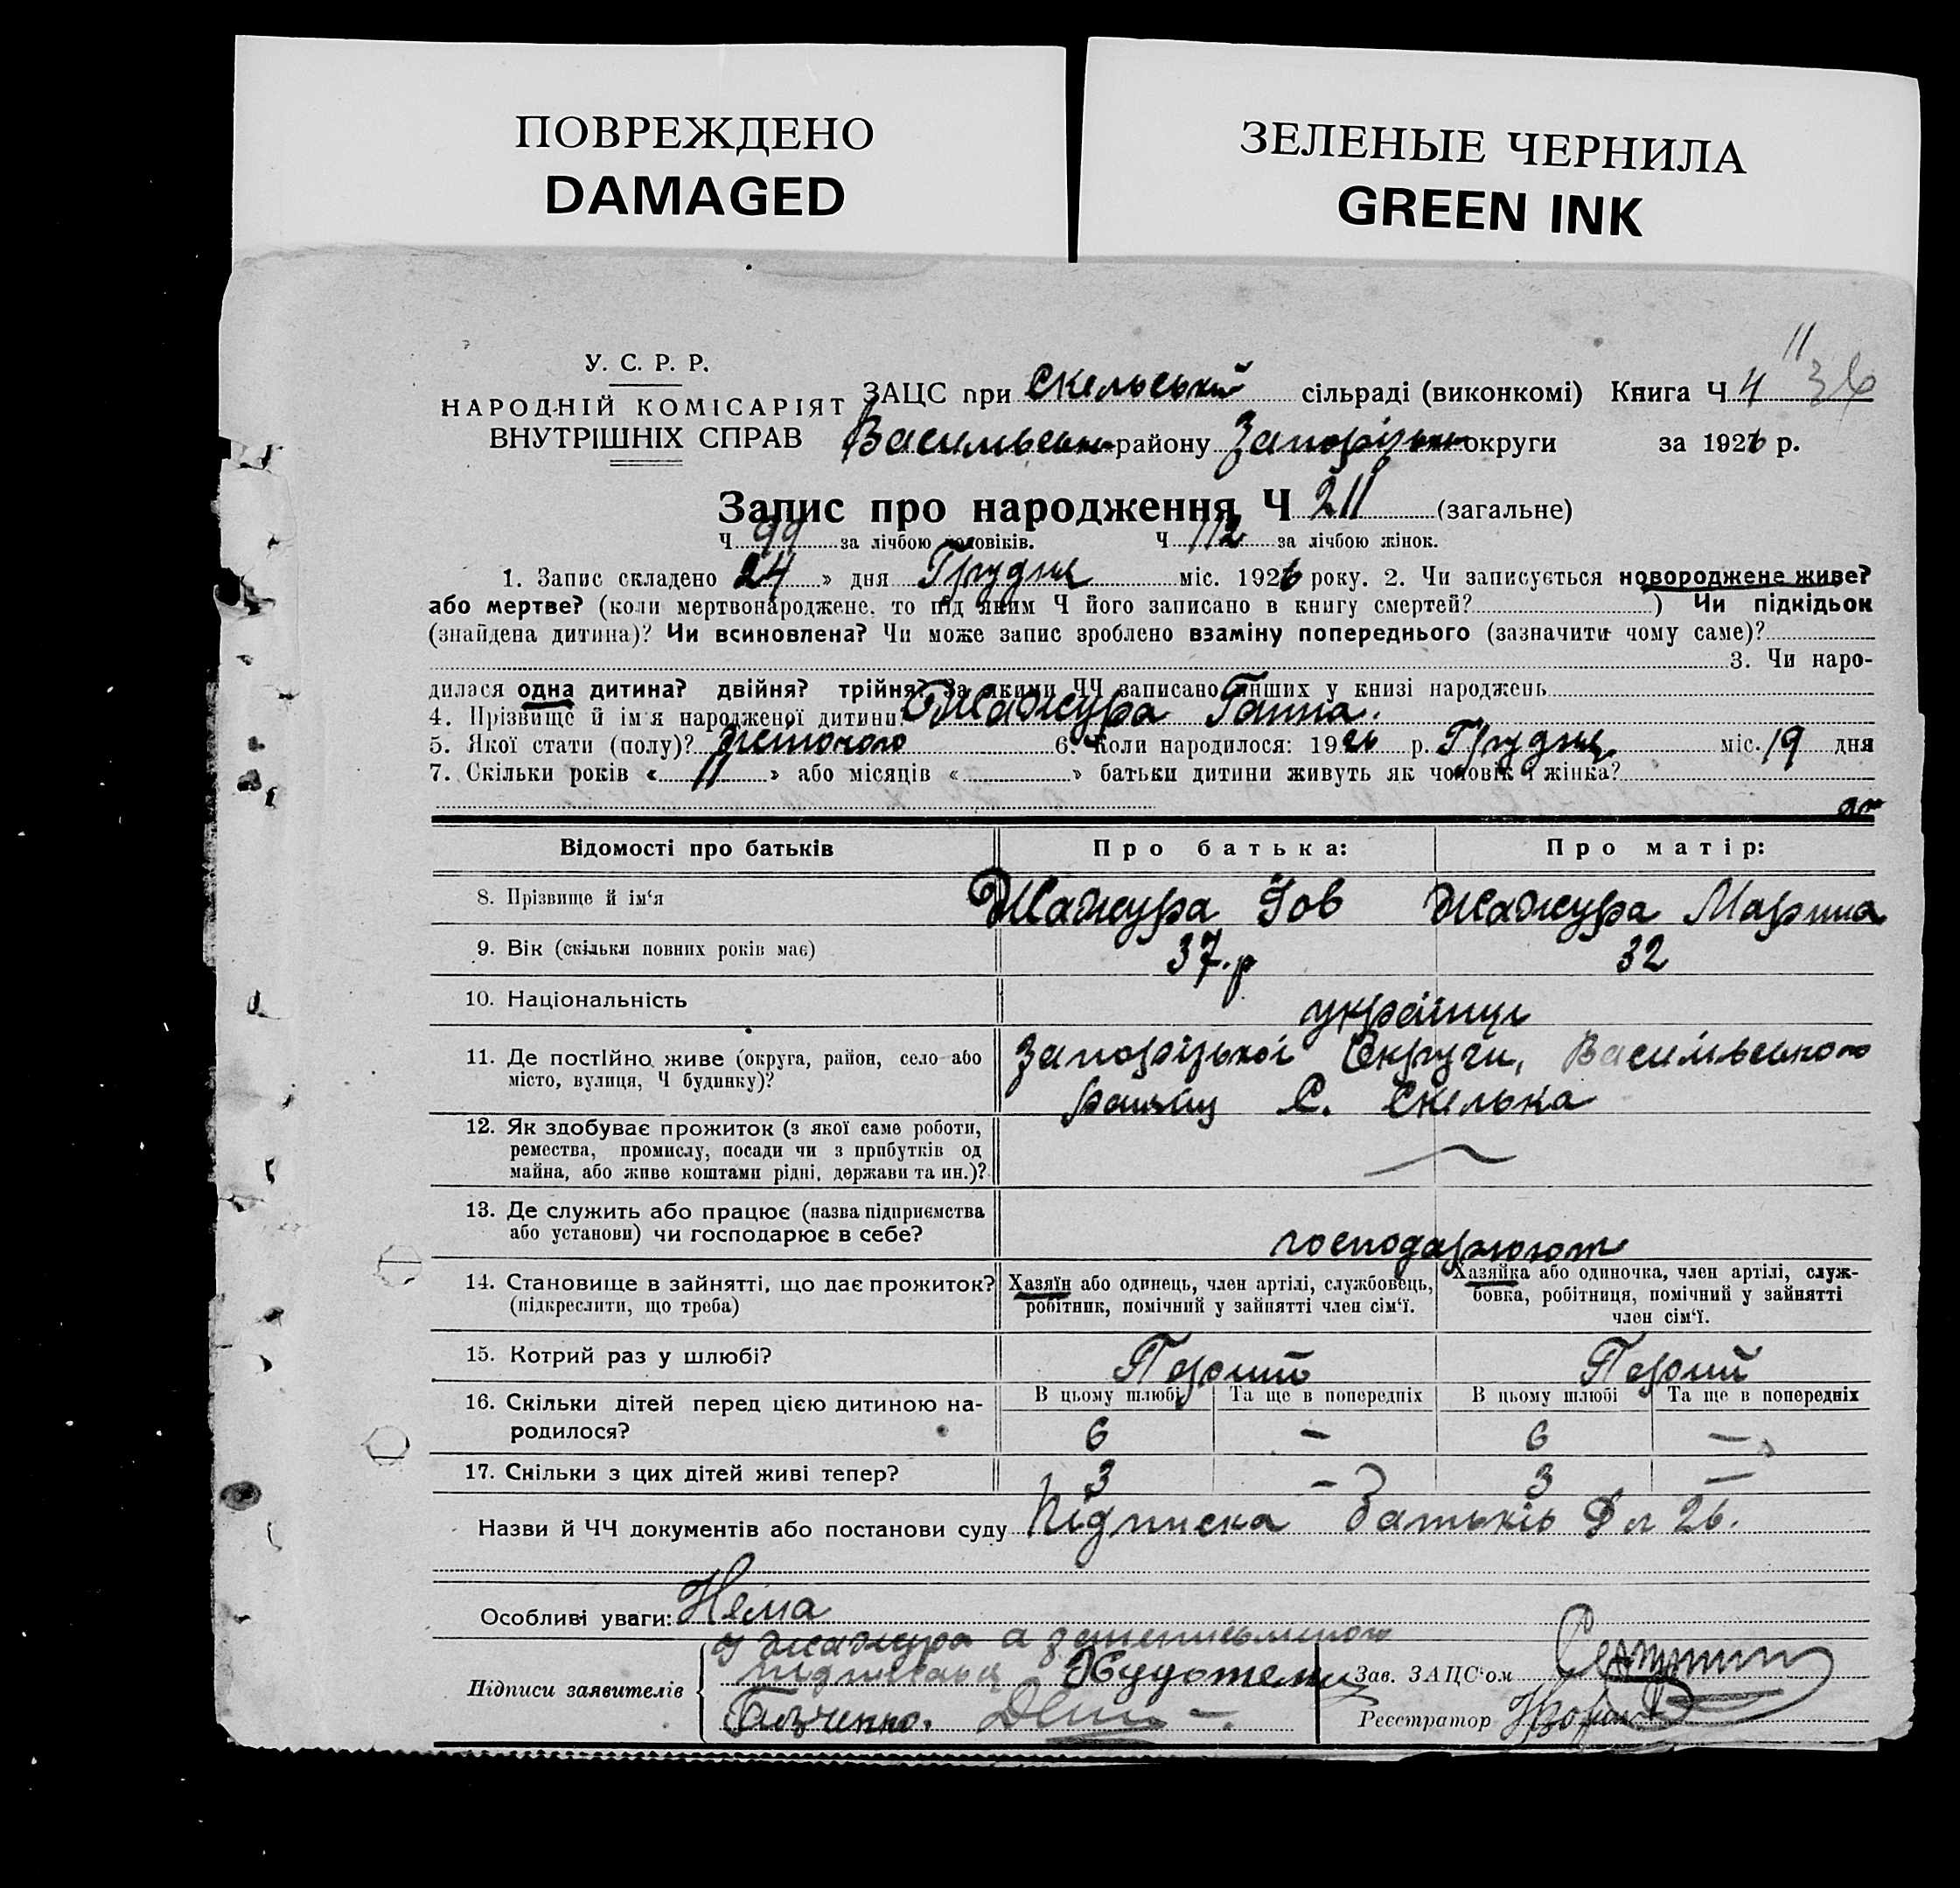 ПОВРЕЖДЕНО
DAMAGED
ЗЕЛЕНЫЕ ЧЕРНИЛА
GREEN INK
11
36
У. С. Р. Р.
НАРОДНІЙ КОМІСАРІЯТ
ВНУТРІШНІХ СПРАВ
ЗАЦС при Скельській сільраді (виконкомі) Книга Ч 4
Васильськ району Запорізьк округи за 1926 р.
Запис про народження Ч 211 (загальне)
Ч 99 за лічбою чоловіків. Ч 112 за лічбою жінок.
1. Запис складено 24 » дня Грудня міс. 1926 року. 2. Чи записується новороджене живе?
або мертве? (коли мертвонароджене, то під яким Ч його записано в книгу смертей? ) Чи підкідьок
(знайдена дитина)? Чи всиновлена? Чи може запис зроблено взаміну попереднього (зазначити чому саме)?
3. Чи наро-
дилася одна дитина? двійня? трійня? За якими ЧЧ записано инших у книзі народжень
4. Прізвище й ім'я народженої дитини: Джаджура Ганна.
5. Якої стати (полу)? жіночого 6. Коли народилося: 1926 р. Грудня міс. 19 дня
7. Скільки років « 11 » або місяців « » батьки дитини живуть як чоловік і жінка?
Відомості про батьків Про батька: Про матір:
8. Прізвище й ім'я Джаджура Іов Джаджура Марина
9. Вік (скільки повних років має) 37.р 32
10. Національність українці
11. Де постійно живе (округа, район, село або Запорізької Округи, Васильвського
місто, вулиця, Ч будинку)? району С. Скелька
12. Як здобуває прожиток (з якої саме роботи,
ремества, промислу, посади чи з прибутків од
майна, або живе коштами рідні, держави та ин.)?
13. Де служить або працює (назва підприємства
або установи) чи господарює в себе? господарюют
14. Становище в зайнятті, що дає прожиток? Хазяїн або одинець, член артілі, службовець, Хазяйка або одиночка, член артілі, служ-
(підкреслити, що треба) робітник, помічний у зайнятті член сім'ї. бовка, робітниця, помічний у зайнятті
член сім'ї.
15. Котрий раз у шлюбі? Перший Перший
16. Скільки дітей перед цією дитиною на- В цьому шлюбі Та ще в попередніх В цьому шлюбі Та ще в попередніх
родилося? 6 – 6 –
17. Скільки з цих дітей живі тепер? 3 – 3 –
Назви й ЧЧ документів або постанови суду Підписка батьків 26.
Особливі уваги: Нема
Джаджура а
Підписи заявителів Зав. ЗАЦС'ом
Реєстратор